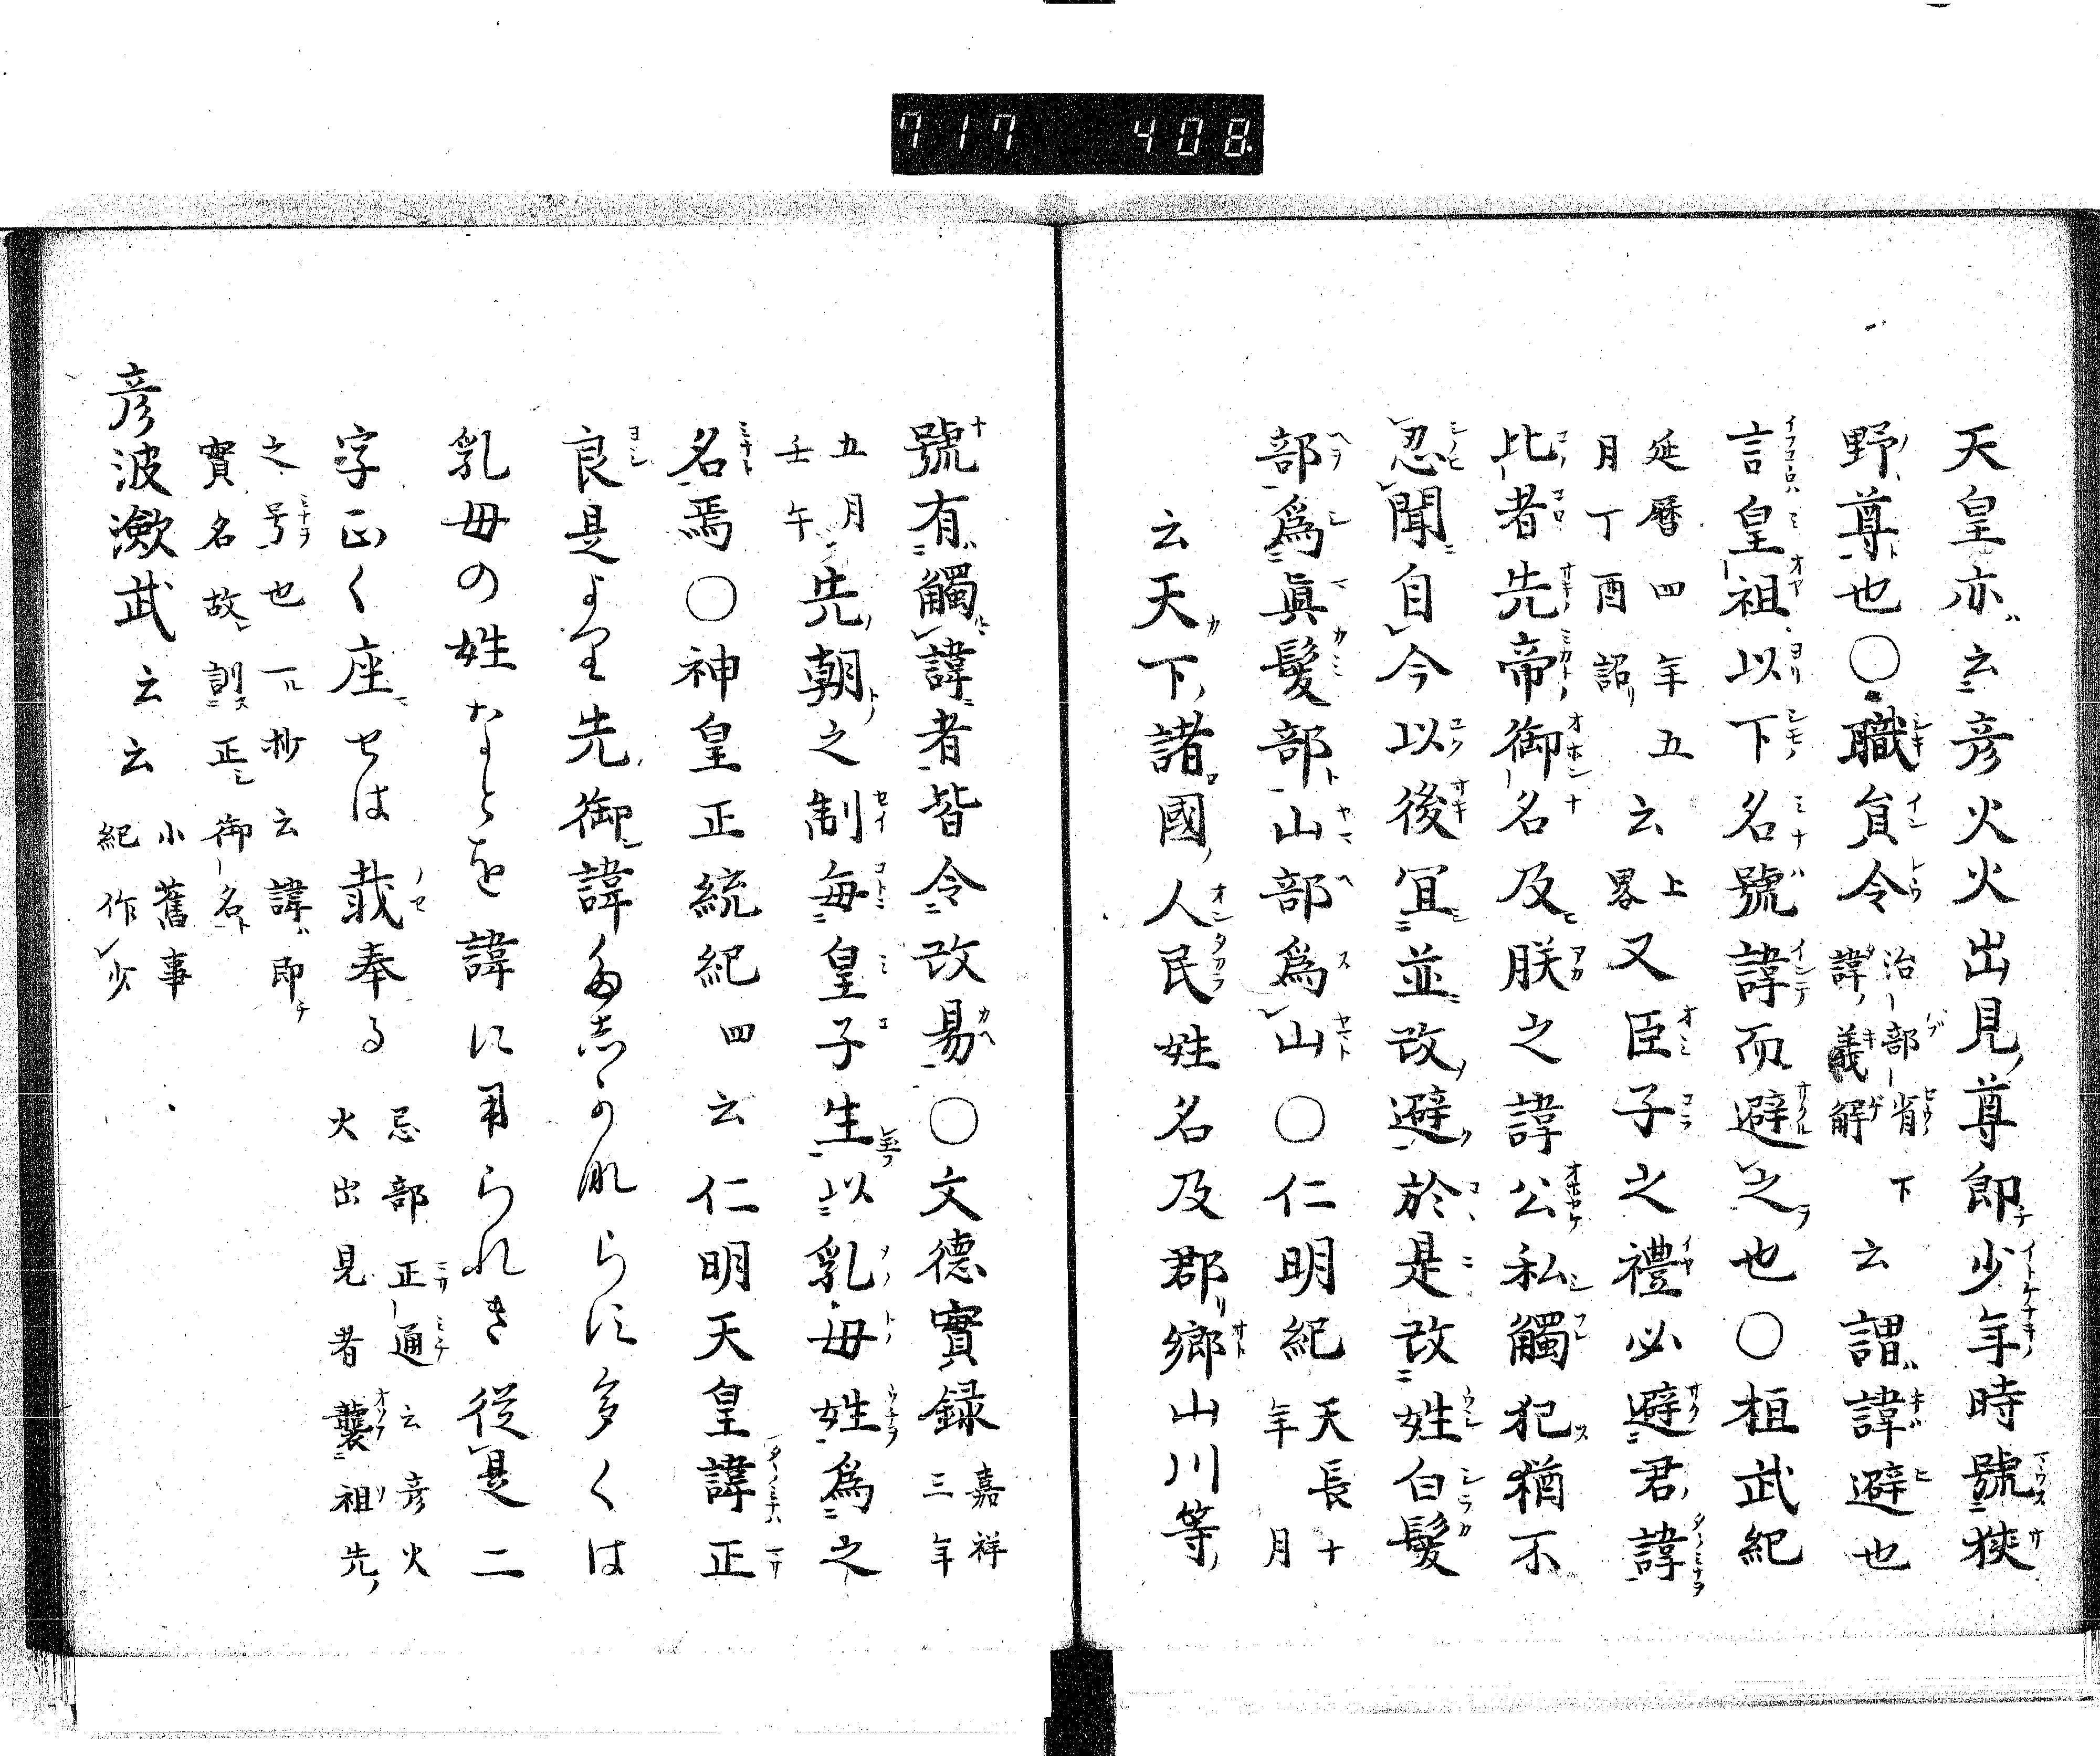 717 408
天皇亦云彦火火出見尊即少年時號狹
野尊也〇職貟令治部省下諱義解云謂諱避也
言皇祖以下名號諱而避之也〇桓武紀
延暦四年五月丁酉詔云上畧又臣子之禮必避君諱
比者先帝御名及朕之諱公私觸犯猶不
忍聞自今以後冝並改避於是改姓白髪
部爲眞髪部山部爲山〇仁明紀天長十年月
云天下諸國人民姓名及郡郷山川等
號有觸諱者皆令改易〇文德實録嘉祥三年
五月壬午先朝之制毎皇子生以乳母姓爲之
名焉〇神皇正統紀四云仁明天皇諱正
良是より先御諱多しかならす多くは
乳母の姓なとを諱に用られき従是二
字正く座せは載奉る忌部正通云彦火火出見者襲祖先
之号也一抄云諱即實名故訓正御名
彦波瀲武云云小舊事紀作少